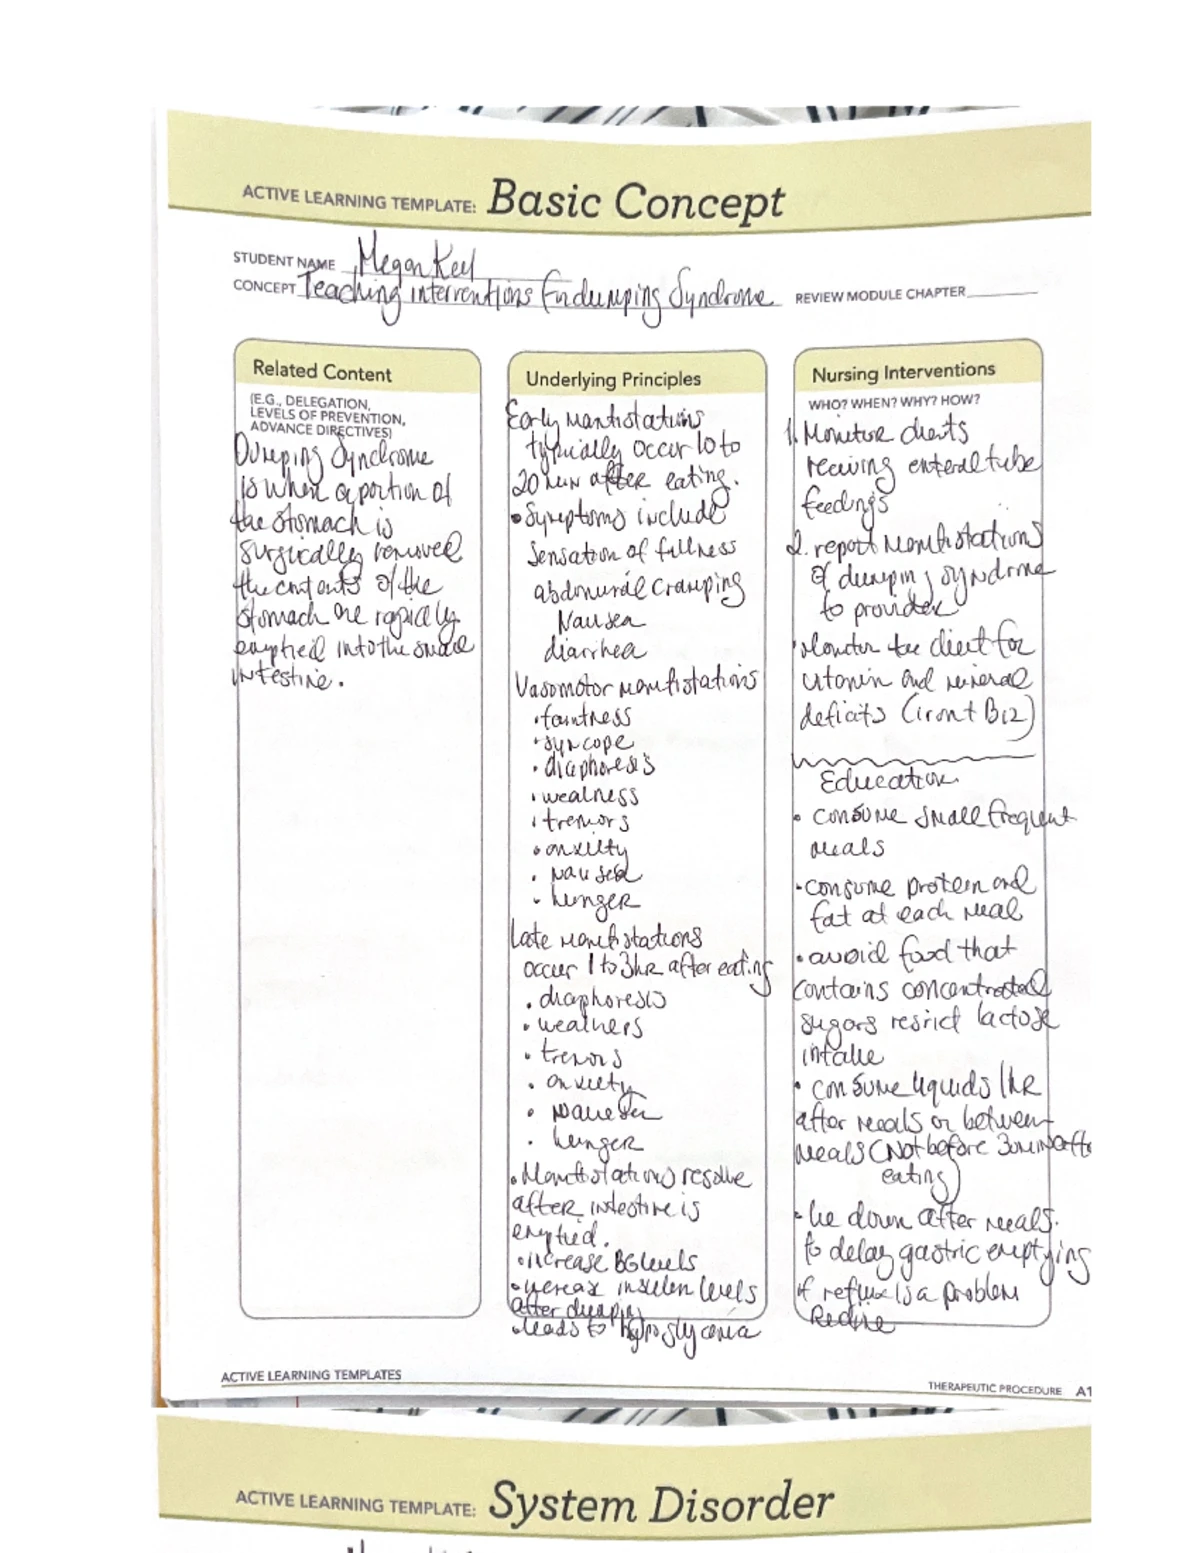 ACTIVE LEARNING TEMPLATE: Basic Concept
STUDENT NAME Megan Keel
CONCEPT Teaching interventions for dumping Syndrome REVIEW MODULE CHAPTER
Related Content
(E.G., DELEGATION,
LEVELS OF PREVENTION,
ADVANCE DIRECTIVES)
Dumping Syndrome
is when a portion of
the stomach is
surgically removed
the contents of the
stomach are rapidly
emptied into the small
intestine.
Underlying Principles
Early manifistations
typically occur 10 to
20 min after eating.
• Symptoms include
Sensation of fullness
abdominal Cramping
Nausea
diarrhea
Vasomotor manifistations
• faintness
• syncope
• diaphoresis
• weakness
• tremors
• anxiety
• nausea
• hunger
Late manifistations
occur 1 to 3hr after eating
• diaphoresis
• weakness
• tremors
• anxiety
• nausea
• hunger
• Manifistations resolve
after intestine is
emptied.
• increase BG levels
• increase insulin levels
after dumping
• leads to hypoglycemia
Nursing Interventions
WHO? WHEN? WHY? HOW?
1. Monitor clients
receiving enteral tube
feedings
2. report manifistations
of dumping syndrome
to provider
• Monitor the client for
vitamin and mineral
deficits (iron + B12)
Education
• consume small frequent
meals
• consume protein and
fat at each meal
• avoid food that
contains concentrated
sugars restrict lactose
intake
• consume liquids 1hr
after meals or between
meals (Not before 30min after
eating)
• lie down after meals.
to delay gastric emptying
if reflux is a problem
Recline
ACTIVE LEARNING TEMPLATES
THERAPEUTIC PROCEDURE A1
ACTIVE LEARNING TEMPLATE: System Disorder